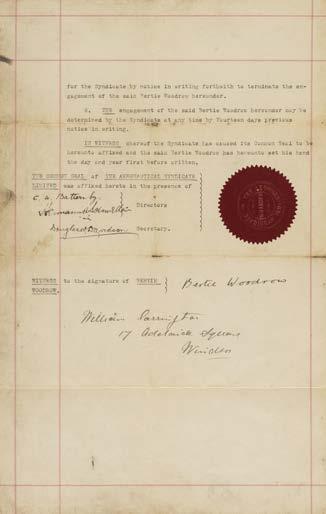 for the Syndicate by notice in writing forthwith to terminate the en-
gagement of the said Bertie Woodrow hereunder.
8. THE engagement of the said Bertie Woodrow hereunder may be
determined by the Syndicate at any time by fourteen days previous
notice in writing.
IN WITNESS whereof the Syndicate has caused its Common Seal to be
hereunto affixed and the said Bertie Woodrow has hereunto set his hand
the day and year first before written.
THE COMMON SEAL of THE AERONAUTICAL SYNDICATE
LIMITED was affixed hereto in the presence of
C. A. Batten
Directors
Secretary.
WITNESS to the signature of BERTIE
WOODROW.
Bertie Woodrow
William Carrington
17 Adelaide Square
Windsor